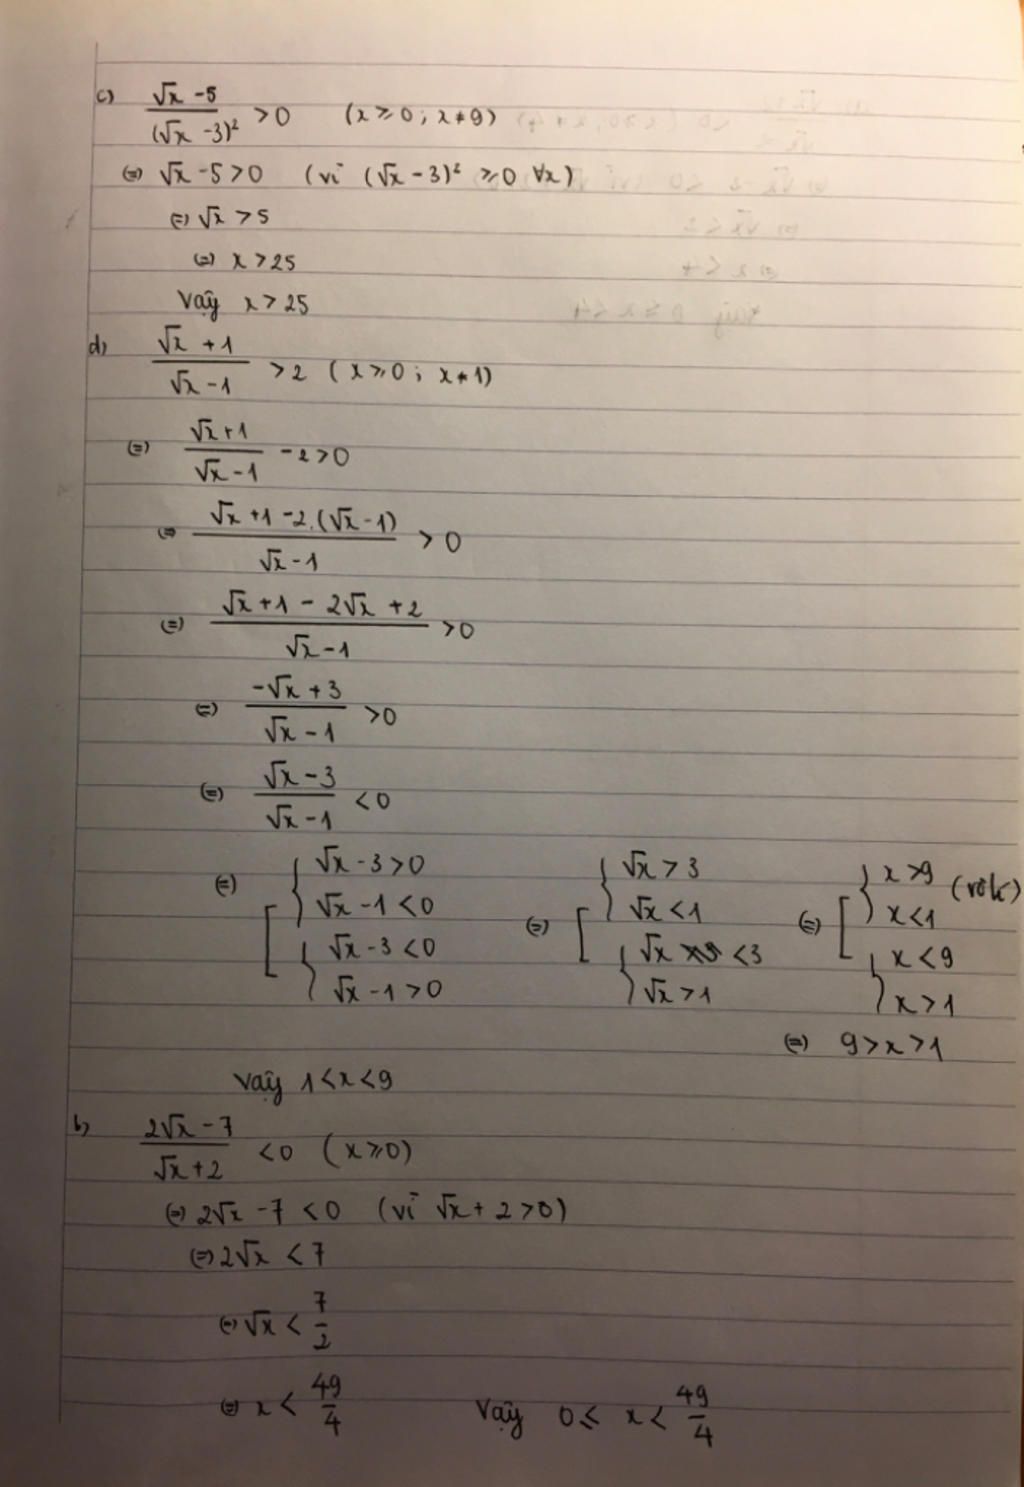 c) (√x - 5)/(√x - 3)² > 0 (x ⩾ 0 ; x ≠ 9)
(=) √x - 5 > 0 (vì (√x - 3)² ⩾ 0 ∀x)
(=) √x > 5
(=) x > 25
Vậy x > 25
d) (√x + 1)/(√x - 1) > 2 (x ⩾ 0 ; x ≠ 1)
(=) (√x + 1)/(√x - 1) - 2 > 0
(=) (√x + 1 - 2.(√x - 1))/(√x - 1) > 0
(=) (√x + 1 - 2√x + 2)/(√x - 1) > 0
(=) (-√x + 3)/(√x - 1) > 0
(=) (√x - 3)/(√x - 1) < 0
(=) [ { √x - 3 > 0 (=) [ { √x > 3 (=) [ { x > 9 (vô lí)
√x - 1 < 0 √x < 1 x < 1
{ √x - 3 < 0 { √x < 3 { x < 9
√x - 1 > 0 √x > 1 x > 1
(=) 9 > x > 1
Vậy 1 < x < 9
b) (2√x - 7)/(√x + 2) < 0 (x ⩾ 0)
(=) 2√x - 7 < 0 (vì √x + 2 > 0)
(=) 2√x < 7
(=) √x < 7/2
(=) x < 49/4 Vậy 0 ⩽ x < 49/4